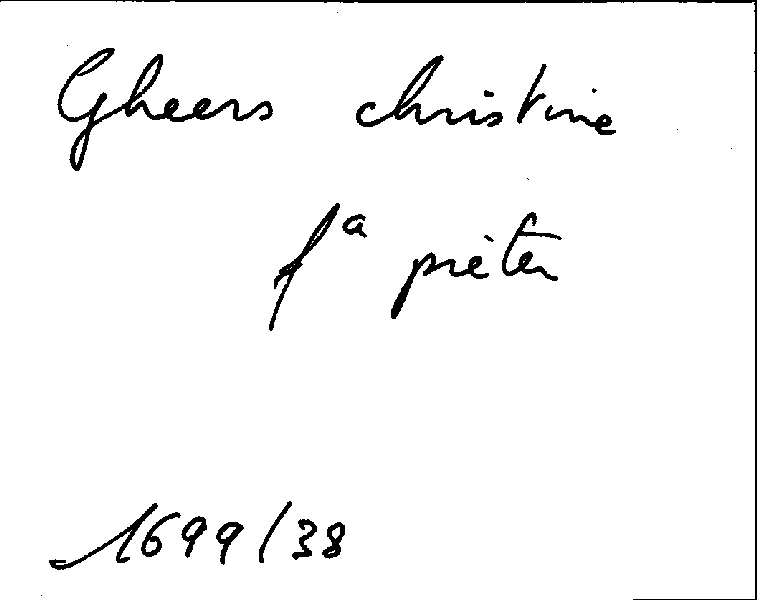 Gheers christine
fª pieter
1699/38